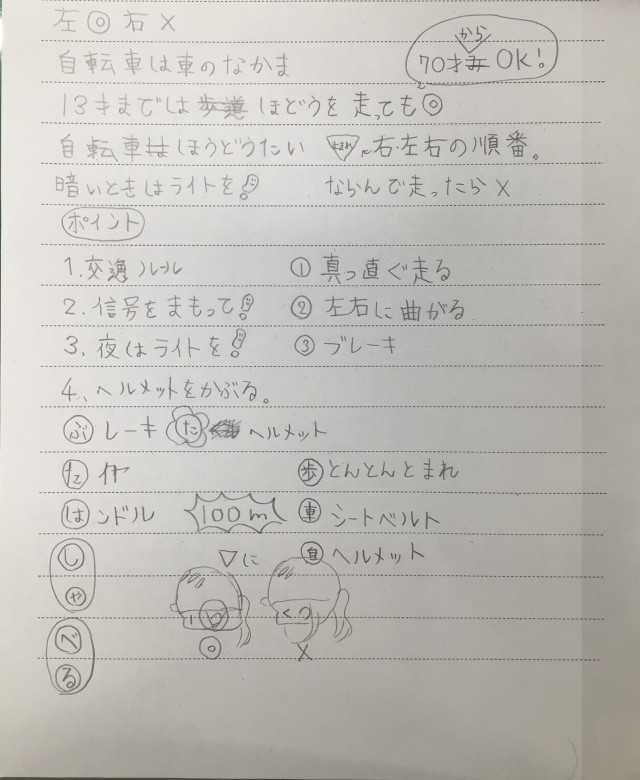 左◎右×
から
70才 OK!
自転車は車のなかま
13才までは ほどうを走っても◎
自転車 ほうどうたい 右・左右の順番。
暗いときはライトを! ならんで走ったら×
ポイント
1.交通ルール ①真っ直ぐ走る
2.信号をまもって! ②左右に曲がる
3.夜はライトを! ③ブレーキ
4、ヘルメットをかぶる。
ぶレーキ た ヘルメット
たイヤ 歩とんとんとまれ
はンドル 100m 車シートベルト
しゃ ▽に 自ヘルメット
べる
◎ ×